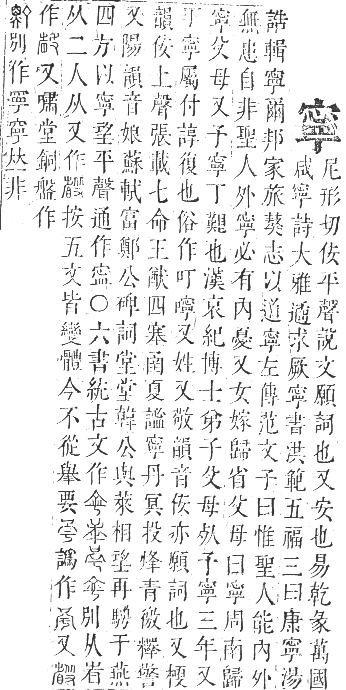 寧
尼形切佞平聲說文願詞也又安也易乾彖萬國
咸寧詩大雅遹求厥寧書洪範五福三曰康寧湯
誥輯寧爾邦家旅獒志以道寧左傳范文子曰惟聖人能內外
無患自非聖人外寧必有內憂又女嫁歸省父母曰寧周南歸
寧父母又予寧丁艱也漢哀紀博士弟子父母死予寧三年又
丁寧屬付諄復也俗作叮嚀又姓又敬韻音佞亦願詞也又梗
韻佞上聲張載七命王猷四塞函夏謐寧丹冥投烽青徼釋警
又陽韻音娘蘇軾富鄭公碑詞堂堂韓公與萊相望再聘于燕
四方以寧望平聲通作寍○六書統古文作別从省
从二人从又作按五文皆變體今不從舉要譌作又
作又嘯堂銅盤作
別作寧寍丛非